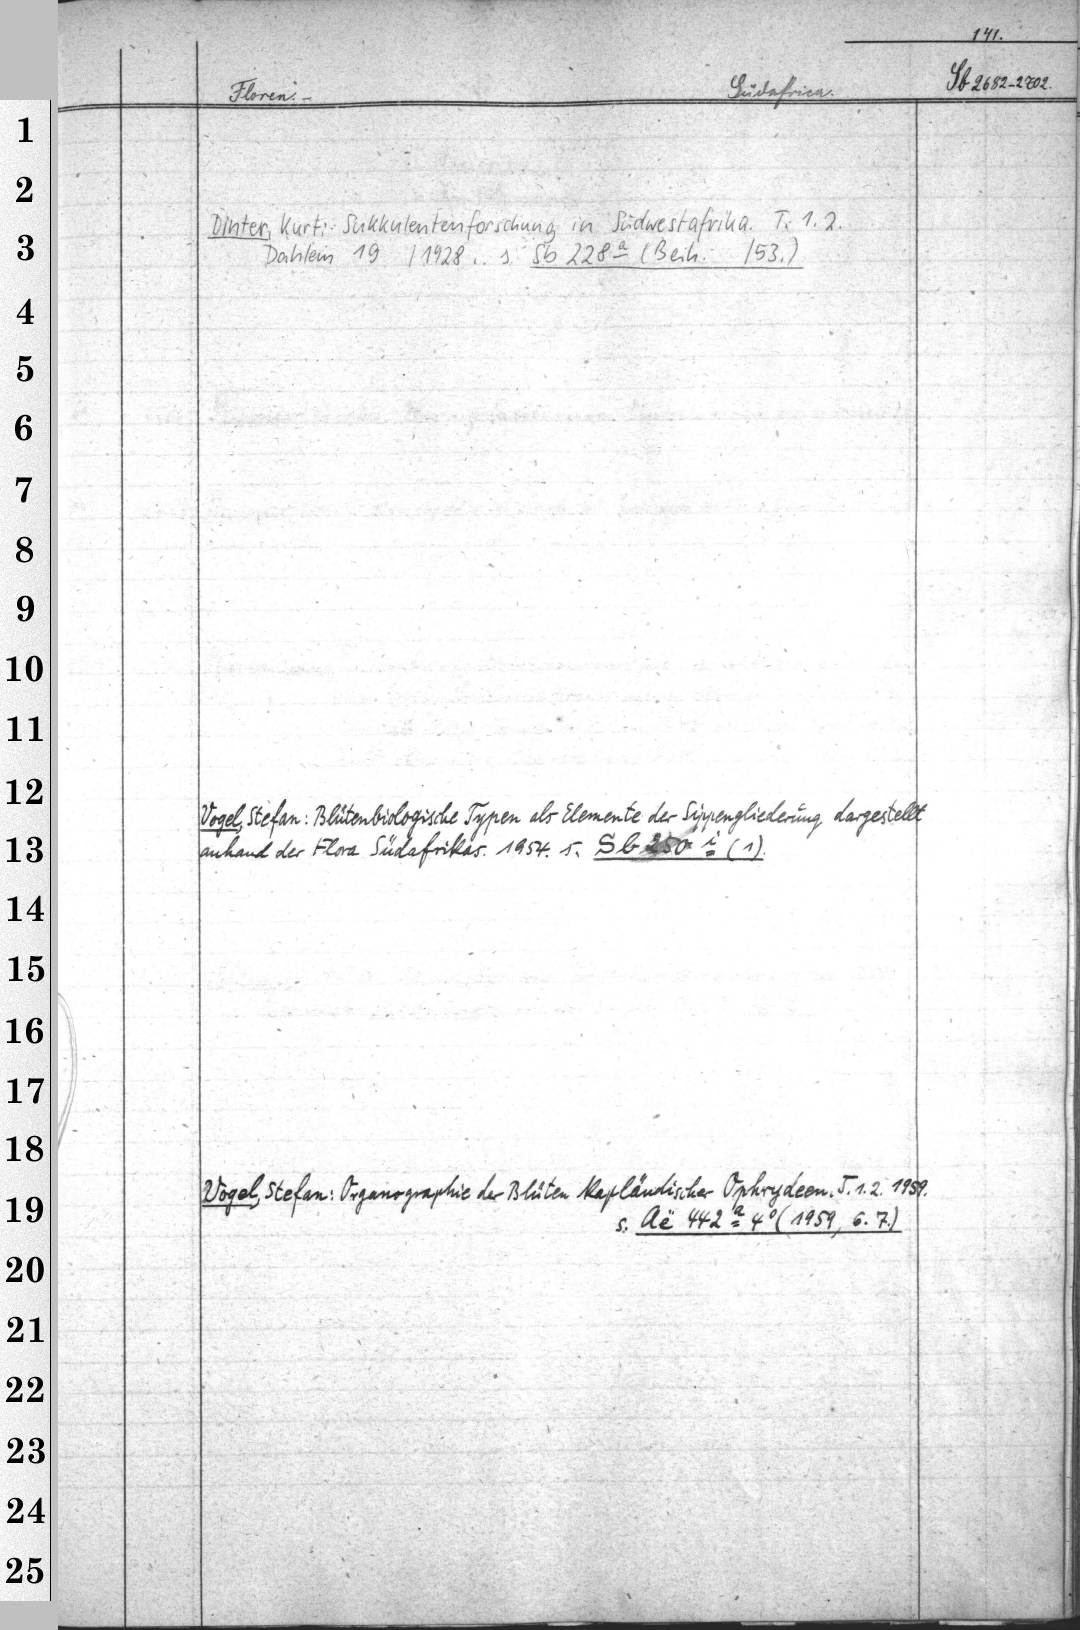 141.
Floren. – Südafrica. Sb 2682–2702.
1
2
Dinter, Kurt: Sukkulentenforschung in Südwestafrika. T. 1. 2.
3
Dahlem 19 /1928. s. Sb 228 a (Beih. /53.)
4
5
6
7
8
9
10
11
12
Vogel, Stefan: Blütenbiologische Typen als Elemente der Sippengliederung dargestellt
13
anhand der Flora Südafrikas. 1954. s. Sb 250 i (1).
14
15
16
17
18
Vogel, Stefan: Organographie der Blüten kapländischer Ophrydeen. T. 1. 2. 1959.
19
s. Aë 442 a 4° (1959, 6. 7.)
20
21
22
23
24
25